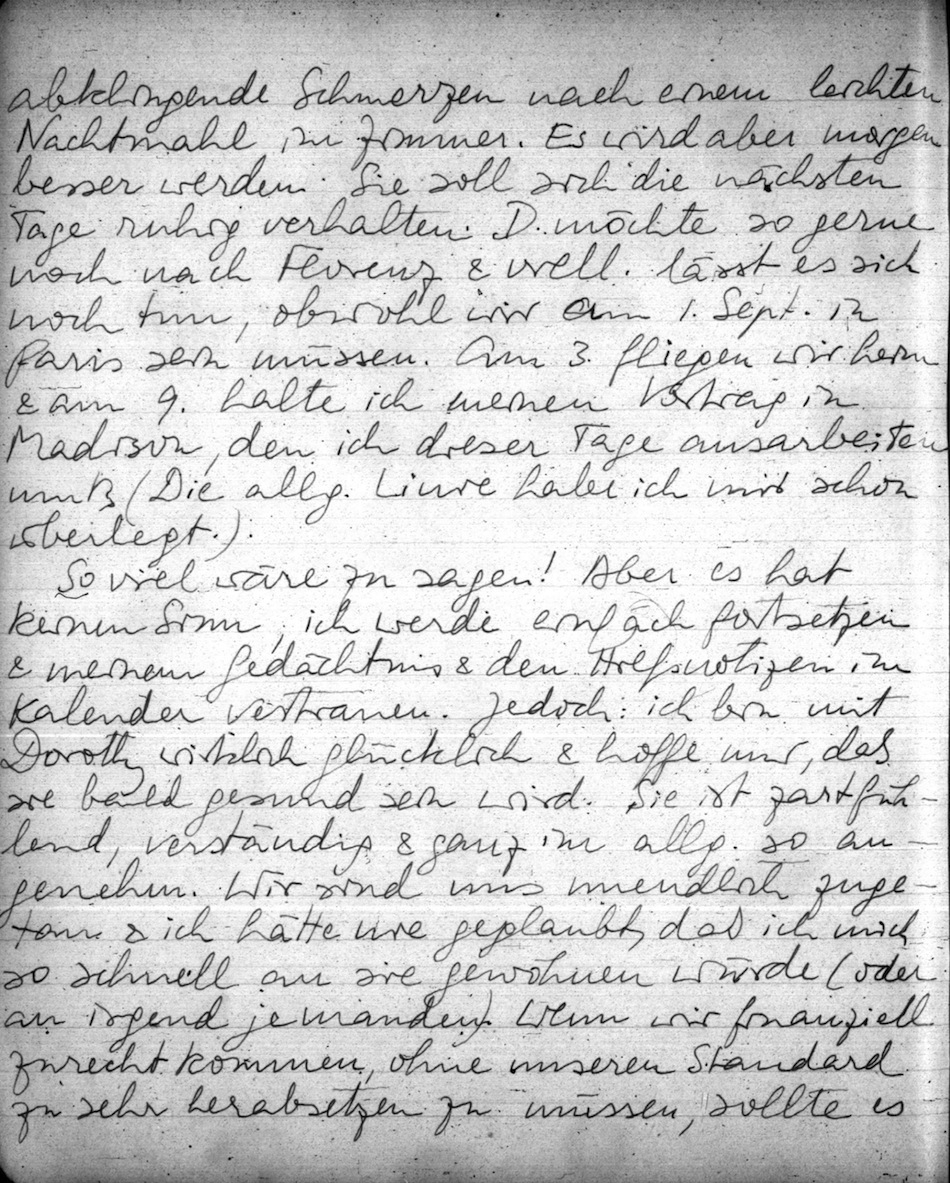 abklingende Schmerzen nach einem leichten
Nachtmahl im Zimmer. Es wird aber morgen
besser werden. Sie soll sich die nächsten
Tage ruhig verhalten. D. möchte so gerne
noch nach Florenz & viell. lässt es sich
noch tun, obwohl wir am 1. Sept. in
Paris sein müssen. Am 3. fliegen wir heim
& am 9. halte ich meinen Vortrag in
Madison, den ich dieser Tage ausarbeiten
muß (Die allg. Linie habe ich mir schon
überlegt.).
So viel wäre zu sagen! Aber es hat
keinen Sinn, ich werde einfach fortsetzen
& meinem Gedächtnis & den Hilfsnotizen im
Kalender vertrauen. Jedoch: ich bin mit
Dorothy wirklich glücklich & hoffe nur, daß
sie bald gesund sein wird. Sie ist zartfüh-
lend, verständig & ganz im allg. so an-
genehm. Wir sind uns unendlich zuge-
tan & ich hätte nie geglaubt, daß ich mich
so schnell an sie gewöhnen würde (oder
an irgend jemanden). Wenn wir finanziell
zurecht kommen, ohne unseren Standard
zu sehr herabsetzen zu müssen, sollte es